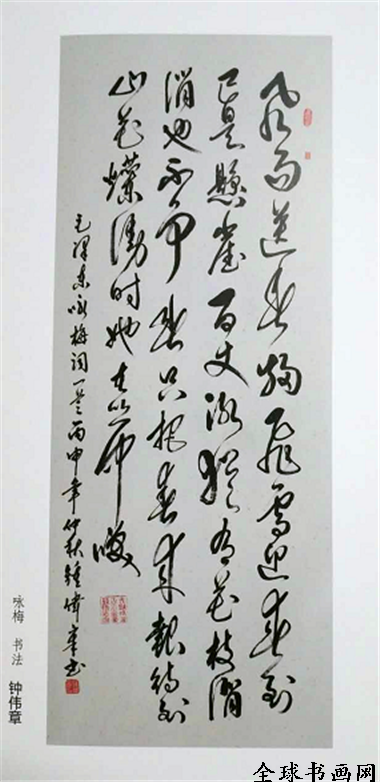 風雨送春歸飛雪迎春到
已是懸崖百丈冰猶有花枝俏
俏也不争春只把春来報待到
山花爛漫时她在丛中笑
毛泽东咏梅词一首丙申年仲秋鍾偉章书
咏梅 书法 钟伟章
全球书画网